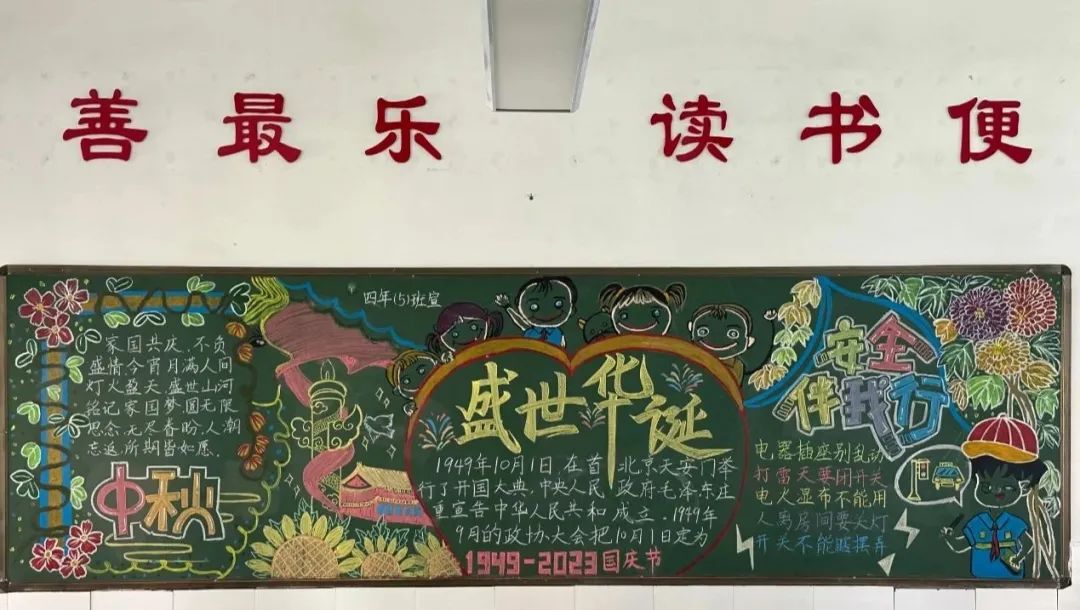 善最乐 读书便
四年(5)班宣
家国共庆,不负
盛情,今宵月满人间
灯火盈天,盛世山河
铭记家国梦圆无限
思念,无尽春盼,人潮
忘返,所期皆如愿.
中秋
盛世华诞
1949年10月1日,在首 北京天安门举
行了开国大典,中央人民 政府毛泽东庄
重宣告中华人民共和 成立.1949年
9月的政协大会把10月1日定为
1949-2023国庆节
安全
伴我行
电器插座别乱动
打雷天要闭开关
电火湿布不能用
人离房间要关灯
开关不能瞎摆弄